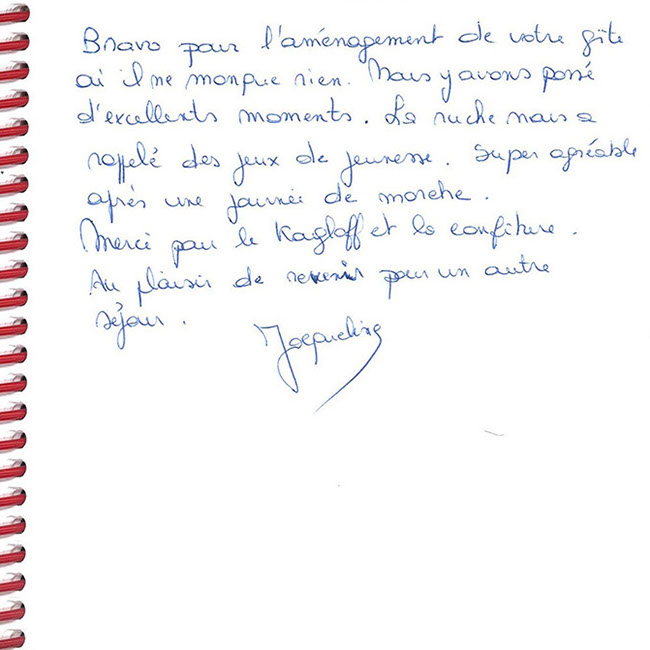 Bravo pour l'aménagement de votre gîte
où il ne manque rien. Nous y avons passé
d'excellents moments. La ruche nous a
rappelé des jeux de jeunesse. Super agréable
après une journée de marche.
Merci pour le Kagloff et la confiture.
Au plaisir de revenir pour un autre
séjour.
Jacqueline